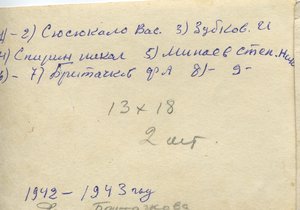 1) - 2) Сюсюкало Вас. 3) Зубков. И
4) Спицин михал 5) Минаев Степ. Ник
6) - 7) Бритачков ФА 8) - 9 -
13 х 18
2 шт.
1942 - 1943 год